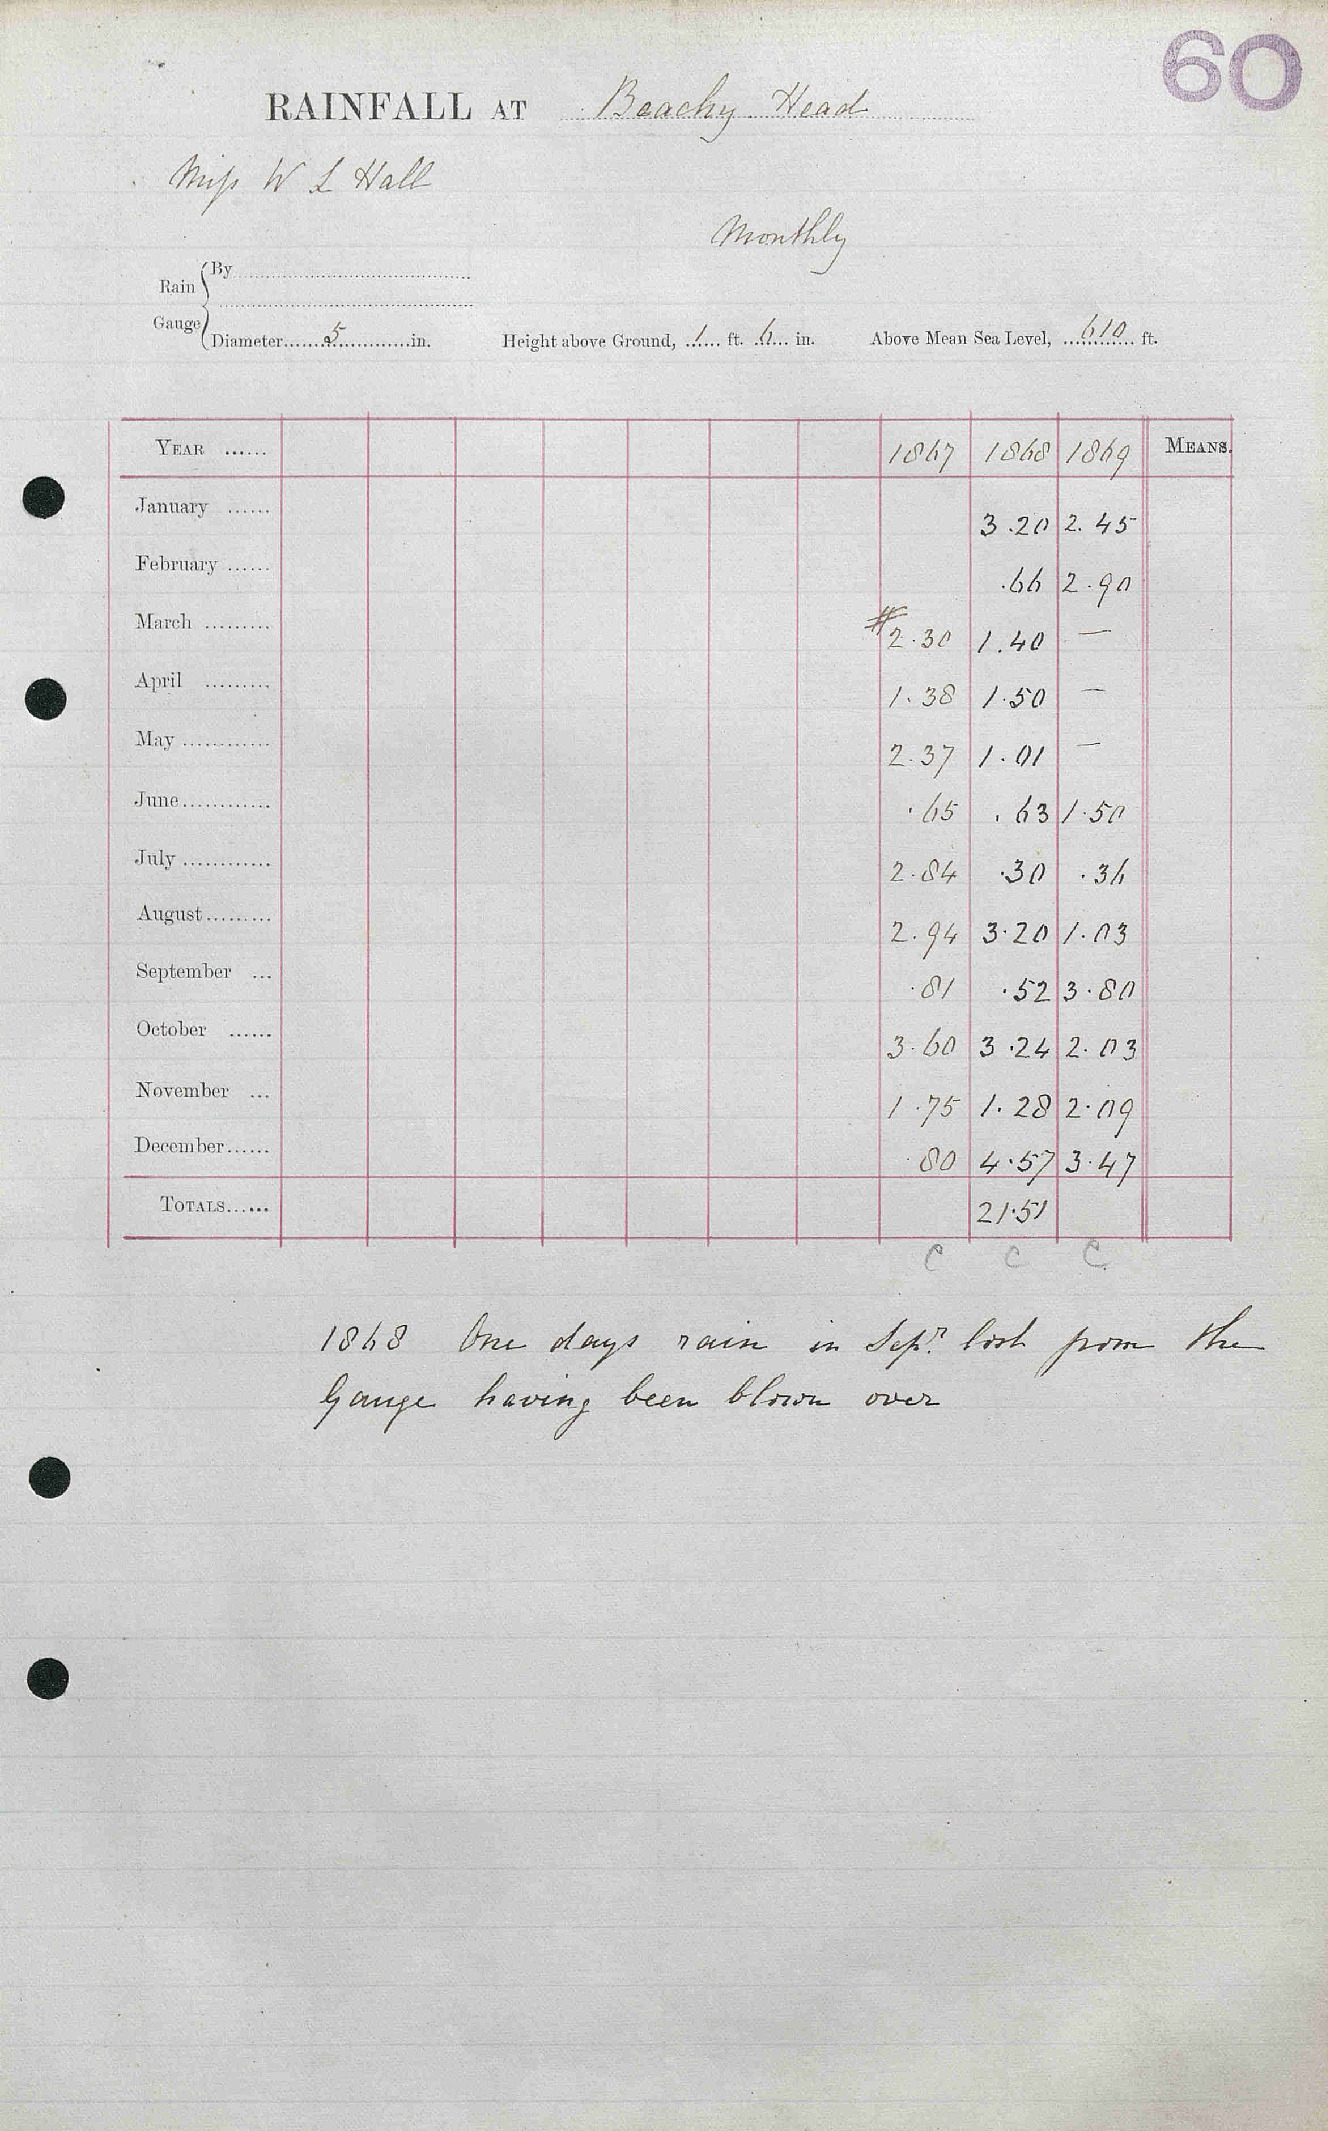 60
RAINFALL AT Beachy Head
Miss W L Hall
Monthly
Rain Gauge { By
Diameter 5 in. Height above Ground, 1 ft. 6 in. Above Mean Sea Level, 610 ft.
YEAR ...... 1867 1868 1869 MEANS.
January ...... 3.20 2.45
February ...... .66 2.90
March ......... # 2.30 1.40 —
April ......... 1.38 1.50 —
May ............ 2.37 1.01 —
June ............ .65 .63 1.50
July ............ 2.84 .30 .36
August ......... 2.94 3.20 1.03
September ... .81 .52 3.80
October ...... 3.60 3.24 2.03
November ... 1.75 1.28 2.09
December ...... .80 4.57 3.47
TOTALS ...... 21.51
C C C
1868 One days rain in Sepr. lost from the
Gauge having been blown over